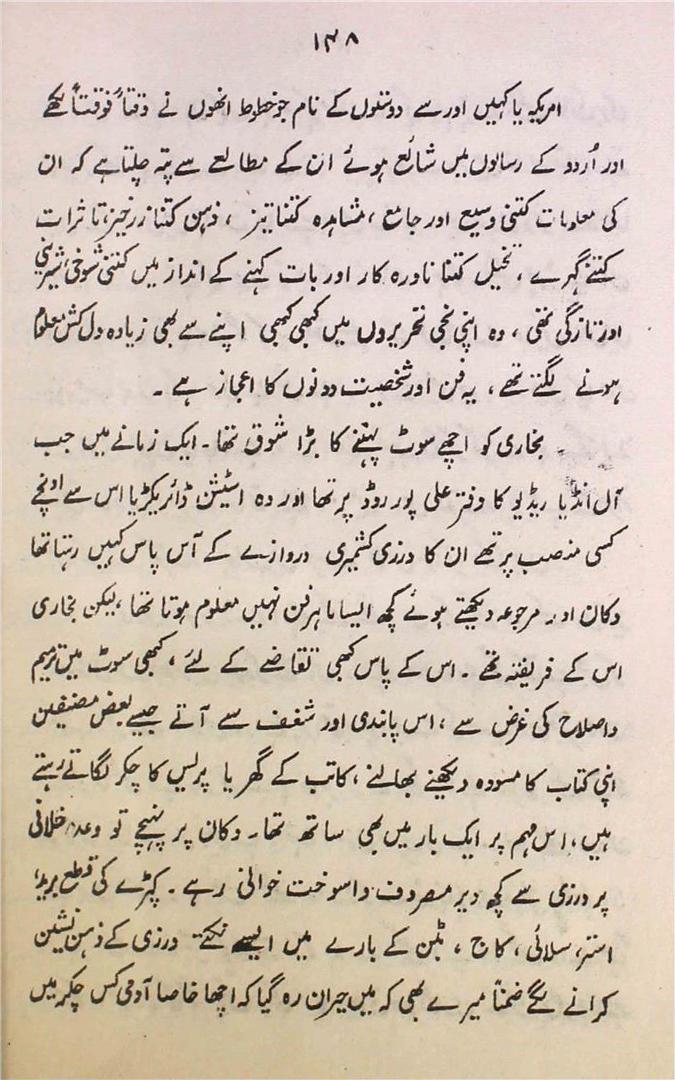 ۱۳۸
امریکہ یا کہیں اور سے دوستوں کے نام جو خطوط انھوں نے وقتاً فوقتاً لکھے
اور اُردو کے رسالوں میں شائع ہوئے ان کے مطالعے سے پتہ چلتا ہے کہ ان
کی معلومات کتنی وسیع اور جامع ، مشاہدہ کتنا تیز ، ذہن کتنا زرخیز، تاثرات
کتنے گہرے ، تخیل کتنا نادرہ کار اور بات کہنے کے انداز میں کتنی شوخی، شیرینی
اور تازگی تھی ، وہ اپنی نجی تحریروں میں کبھی کبھی اپنے سے بھی زیادہ دل کش معلوم
ہونے لگتے تھے ، یہ فن اور شخصیت دونوں کا اعجاز ہے ۔
بخاری کو اچھے سوٹ پہننے کا بڑا شوق تھا ۔ ایک زمانے میں جب
آل انڈیا ریڈیو کا دفتر علی پور روڈ پر تھا اور وہ اسٹیشن ڈائریکٹر یا اس سے اونچے
کسی منصب پر تھے ان کا درزی کشمیری دروازے کے آس پاس کہیں رہتا تھا
دکان اور مرجوعہ دیکھتے ہوئے کچھ ایسا ماہر فن نہیں معلوم ہوتا تھا ، لیکن بخاری
اس کے فریفتہ تھے ۔ اس کے پاس کبھی تقاضے کے لئے ، کبھی سوٹ میں ترمیم
و اصلاح کی غرض سے ، اس پابندی اور شغف سے آتے جیسے بعض مصنفین
اپنی کتاب کا مسودہ دیکھنے بھالنے ، کاتب کے گھر یا پریس کا چکر لگاتے رہتے
ہیں ، اس مہم پر ایک بار میں بھی ساتھ تھا ۔ دکان پر پہنچے تو وعدہ خلافی
پر درزی سے کچھ دیر مصروف واسوخت خوانی رہے ۔ کپڑے کی قطع برید،
استر، سلائی ، کاج ، بٹن کے بارے میں ایسے نکتے درزی کے ذہن نشین
کرانے لگے ضمناً میرے بھی کہ میں حیران رہ گیا کہ اچھا خاصا آدمی کس چکر میں